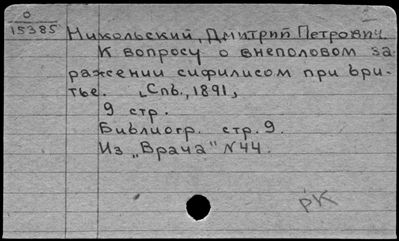 0
15385
Никольский, Дмитрий Петрович.
К вопросу о внеполовом за-
ражении сифилисом при бри-
тье. [Спб., 1891],
9 стр.
Библиогр. стр. 9.
Из „Врача" N44.
рК